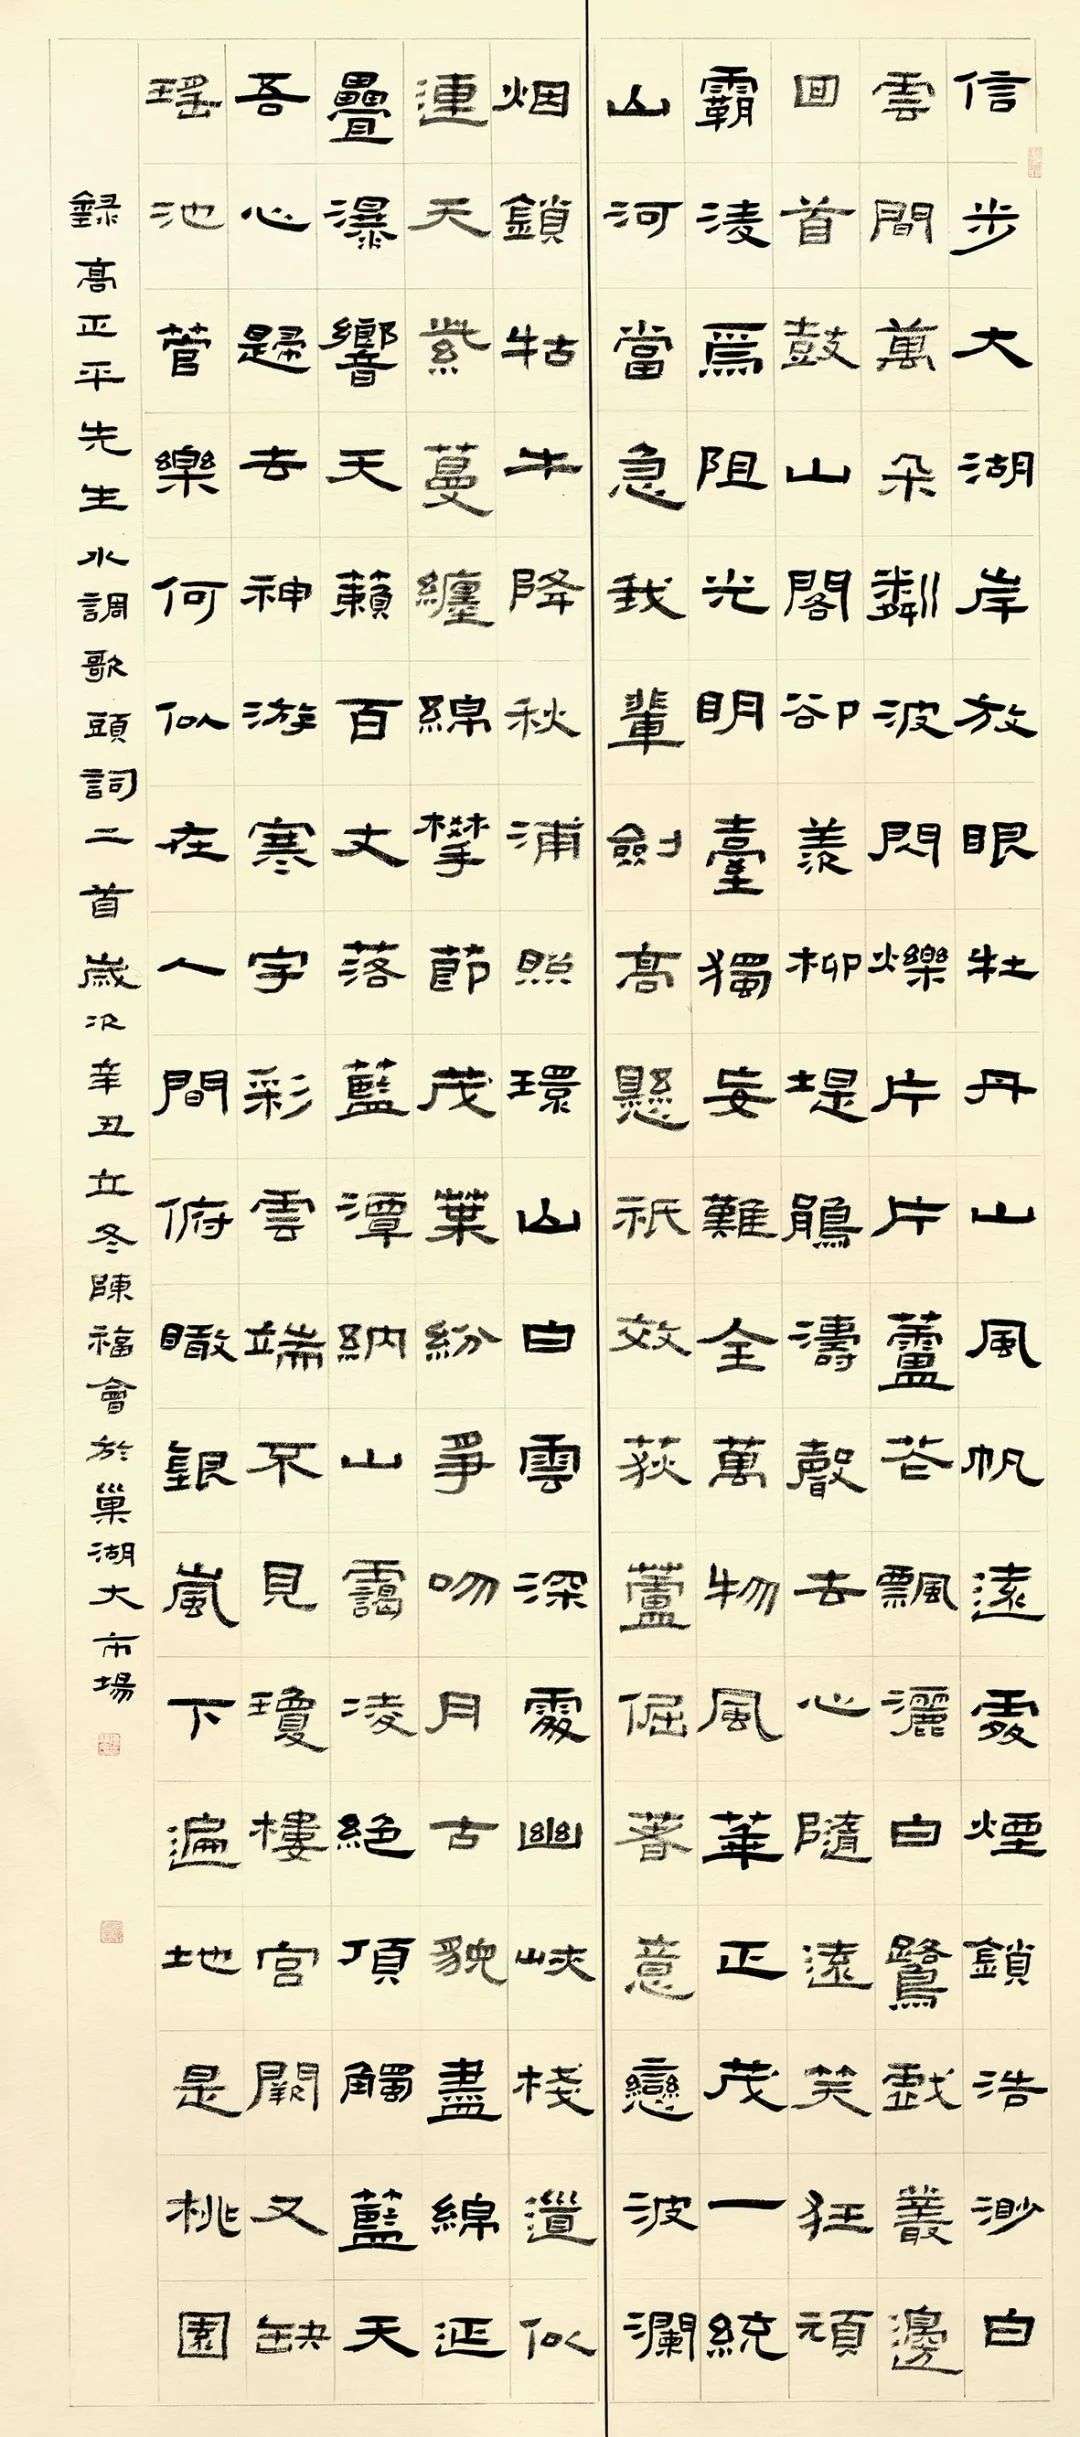 信步大湖岸放眼牡丹山風帆遠處煙鎖浩渺白
雲間萬朵粼波閃爍片片蘆花飄灑白鷺戲叢邊
回首鼓山閣卻羨柳堤鵑濤聲去心隨遠笑狂頑
霸凌爲阻光明臺獨妄難全萬物風華正茂一統
山河當急我輩劍高懸祇效荻蘆倔著意戀波瀾
烟鎖牯牛降秋浦照環山白雲深處幽峽棧道似
連天紫蔓纏綿攀節茂葉紛爭吻月古貌盡綿延
疊瀑響天籟百丈落藍潭納山靄凌絕頂觸藍天
吾心歸去神游寒宇彩雲端不見瓊樓宮闕又缺
瑤池管樂何似在人間俯瞰銀嵐下遍地是桃園
錄高正平先生水調歌頭詞二首歲次辛丑立冬陳福會於巢湖大市場